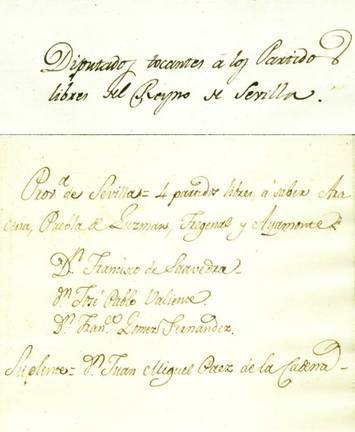 Diputados tocantes á los Partidos
libres del Reyno de Sevilla.
Prov.a de Sevilla = 4 partidos libres, á saber, Ara
cena, Puebla de Guzman, Frigenal y Ayamonte
D.n Francisco de Saavedra
D.n José Pablo Valiente
D.n Fran.co Gomez Fernandez.
Suplente = D.n Juan Miguel Paez de la Cadena